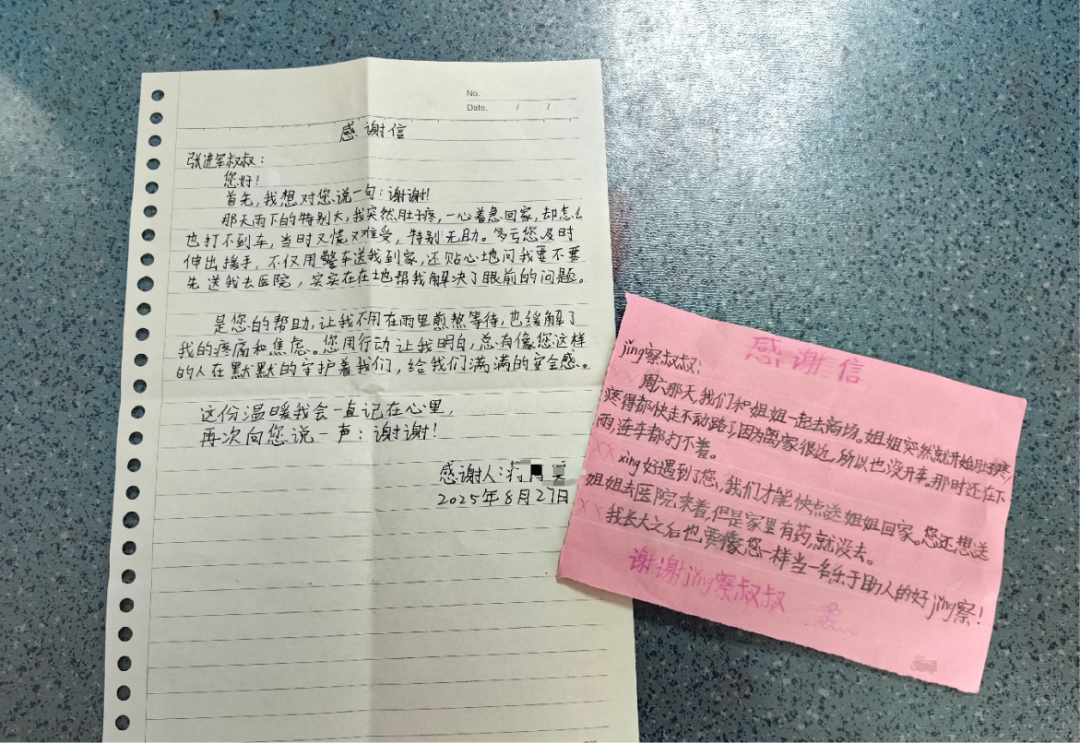 No.
Date.   /   /
感谢信
张进军叔叔：
您好！
首先，我想对您说一句：谢谢！
那天雨下的特别大，我突然肚子疼，一心着急回家，却怎么
也打不到车，当时又慌又难受，特别无助。多亏您及时
伸出援手，不仅用警车送我到家，还贴心地问我要不要
先送我去医院，实实在在地帮我解决了眼前的问题。
是您的帮助，让我不用在雨里煎熬等待，也缓解了
我的疼痛和焦虑。您用行动让我明白，总有像您这样
的人在默默的守护着我们，给我们满满的安全感。
这份温暖我会一直记在心里，
再次向您说一声：谢谢！
感谢人：
2025年8月27日
感谢信
jǐng察叔叔：
周六那天，我们和姐姐一起去商场。姐姐突然就开始肚子疼，
疼得都快走不动路了，因为离家很近，所以也没开车。那时还在下
雨，连车都打不着。
xìng好遇到了您，我们才能快点送姐姐回家。您还想送
姐姐去医院来着，但是家里有药，就没去。
我长大之后也要像您一样当一名乐于助人的好jǐng察！
谢谢jǐng察叔叔